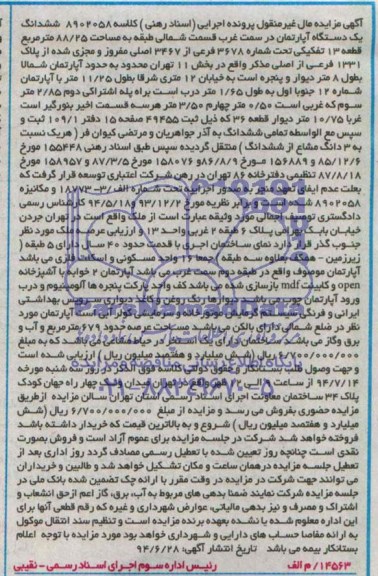 آگهی مزایده مال غیرمنقول پرونده اجرایی (اسناد رهنی) کلاسه ۸۹۰۲۰۵۸ ششدانگ
یک دستگاه آپارتمان در سمت غرب قسمت شمالی طبقه به مساحت ۸۸/۲۵ مترمربع
قطعه ۱۳ تفکیکی تحت شماره ۳۶۷۸ فرعی از ۳۴۶۷ اصلی مفروز و مجزی شده از پلاک
۱۳۳۱ فرعی از اصلی مذکور واقع در بخش ۱۱ تهران محدود به حدود آپارتمان شمالا
بطول ۸ متر دیوار و پنجره است به خیابان ۱۲ متری شرقا بطول ۱۱/۲۵ متر با آپارتمان
شماره ۱۲ جنوبا اول به طول ۱/۶۵ متر درب است براه پله اشتراکی دوم ۲/۸۵ متر
سوم که غربی است ۰/۵۰ متر چهارم ۳/۵۰ متر هرسه قسمت اخیر بنورگیر است
غربا ۱۰/۷۵ متر دیوار قطعه ۳۶ که ذیل ثبت ۴۹۴۵۵ صفحه ۱۵ دفتر ۱۰۹/۱ ثبت و
سپس مع الواسطه تمامی ششدانگ به آذر جواهریان و مرتضی کیوان فر (هریک نسبت
به ۳ دانگ مشاع از ششدانگ) منتقل گردیده سپس طبق اسناد رهنی ۱۵۵۴۴۸ مورخ
۸۵/۱۲/۶ و ۱۵۶۸۸۹ مورخ ۸۶/۸/۹ و ۱۵۸۰۷۶ مورخ ۸۷/۳/۵ و ۱۵۸۹۵۷ مورخ
۸۷/۸/۱۸ تنظیمی دفترخانه ۸۶ تهران در رهن شرکت اعتباری توسعه قرار گرفت که
بعلت عدم ایفای تعهد منجر به صدور اجراییه تحت شماره الف/۳-۱۸۷۳ و مکانیزه
۸۹۰۲۰۵۸ شده بنابر نظریه مورخ ۹۳/۱۲/۲ و ۹۴/۵/۱۱ کارشناس رسمی
دادگستری توصیف اجمالی مورد وثیقه عبارت است از ملک واقع است در تهران جردن
خیابان بابک بهرامی پلاک ۶ طبقه ۲ غربی واحد ۱۳ و ارزیابی عرصه ملک مورد نظر
جنوب گذر قرار دارد نمای ساختمان اجری با قدمت حدود ۴۰ سال دارای ۵ طبقه (
زیرزمین - همکف بعلاوه سه طبقه) جمعا ۱۶ واحد مسکونی و اسکلت فلزی می باشد
آپارتمان موصوف واقع در طبقه دوم سمت غربی می باشد آپارتمان ۲ خوابه با آشپزخانه
open و کابینت mdf بازسازی شده می باشد کف و پارکت پنجره ها آلومینیوم و درب
ورود آپارتمان چوب می باشد دیوارها رنگ روغن و کاغذ دیواری سرویس بهداشتی
ایرانی و فرنگی
نظر در ضلع شمالی دارای بالکن می باشد مساحت عرصه حدود ۶۷۹ مترمربع و آب و
برق وگاز می باشد
۶/۷۰۰/۰۰۰/۰۰۰ ریال (شش میلیارد و هفتصد میلیون ریال) ارزیابی شده است
و جهت وصول طلب بستانکار و حقوق دولتی کلاسه فوق الذکر در روز سه شنبه مورخه
۹۴/۷/۱۴ از ساعت
پلاک ۳۴ ساختمان معاونت اجرای اسناد رسمی استان تهران سالن مزایده ازطریق
مزایده حضوری بفروش می رسد و مزایده از مبلغ ۶/۷۰۰/۰۰۰/۰۰۰ ریال (شش
میلیارد و هفتصد میلیون ریال) شروع و به بالاترین قیمت که خریدار داشته باشد
فروخته خواهد شد شرکت در جلسه مزایده برای عموم آزاد است و فروش بصورت
نقدی است چنانچه روز تعیین شده با تعطیل رسمی مصادف گردد روز اداری بعد از
تعطیل جلسه مزایده درهمان ساعت و مکان تشکیل خواهد شد و طالبین و خریداران
می توانند جهت شرکت در مزایده در وقت مقرر با ارائه چک تضمین شده بانک ملی در
جلسه مزایده شرکت نمایند ضمنا بدهی های مربوط به آب، برق، گاز اعم ازحق انشعاب و
اشتراک و مصرف و نیز بدهی مالیاتی، عوارض شهرداری و غیره که رقم قطعی آنها برای
این اداره معلوم شده یا نشده بعهده برنده مزایده است و تنظیم سند انتقال موکول
به ارائه مفاصا حساب های دارایی و شهرداری خواهد بود مورد مزایده با توجه اعلام
بستانکار بیمه می باشد تاریخ انتشار آگهی: ۹۴/۶/۲۸
۱۴۵۶۳/م الف رئیس اداره سوم اجرای اسناد رسمی - نقیبی
۰۲۱-۸۸۳۴۹۶۷۰-۵